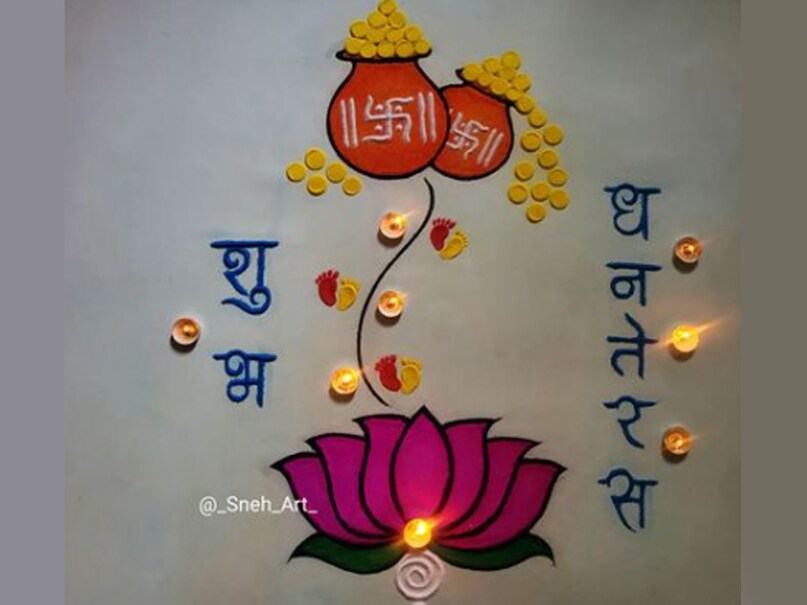 शुभ
धनतेरस
@_Sneh_Art_